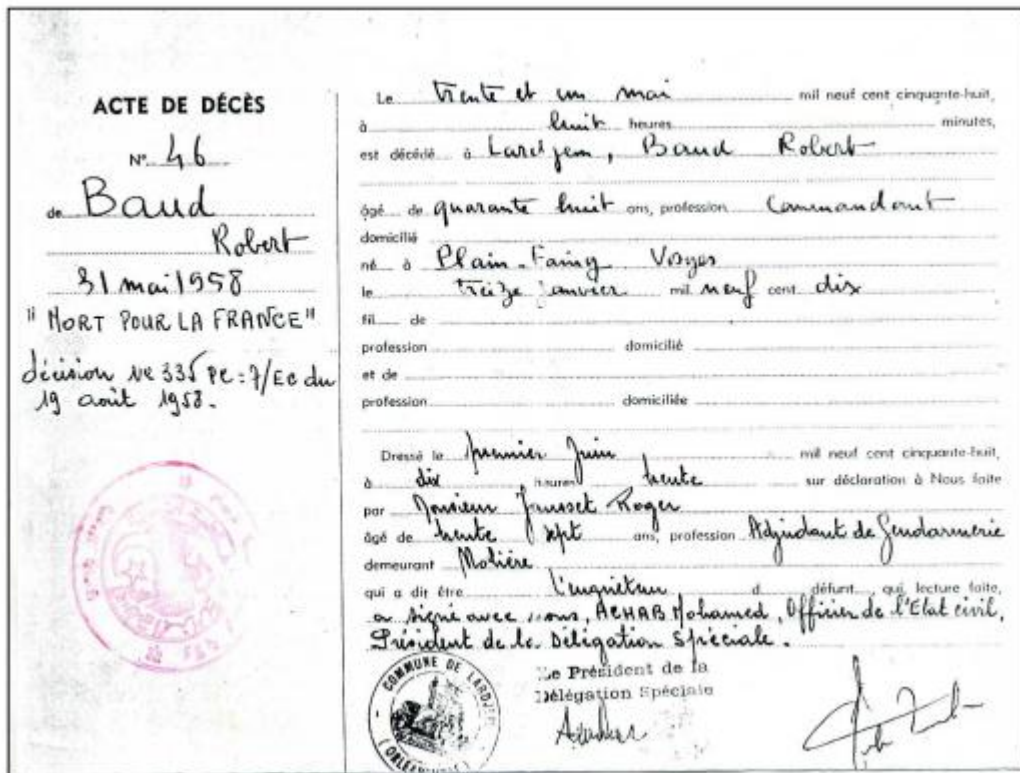 ACTE DE DÉCÈS
N° 46
de Baud
Robert
31 mai 1958
"MORT POUR LA FRANCE"
décision N° 335 PC: 7/EC du
19 août 1958.
Le trente et un mai mil neuf cent cinquante-huit,
à huit heures minutes,
est décédé à Lardjem, Baud Robert
âgé de quarante huit ans, profession Commandant
domicilié
né à Plain-Faing Vosges
le treize janvier mil neuf cent dix
fil de
profession domicilié
et de
profession domiciliée
Dressé le premier Juin mil neuf cent cinquante-huit,
à dix heures trente sur déclaration à Nous faite
par Monsieur Jausset Roger
âgé de trente sept ans, profession Adjudant de Gendarmerie
demeurant Molière
qui a dit être L'enquêteur d défunt, qui, lecture faite,
a signé avec nous, ACHAB Mohamed, Officier de l'Etat civil,
Président de la Délégation Spéciale.
Le Président de la
Délégation Spéciale
COMMUNE DE LARDJEM